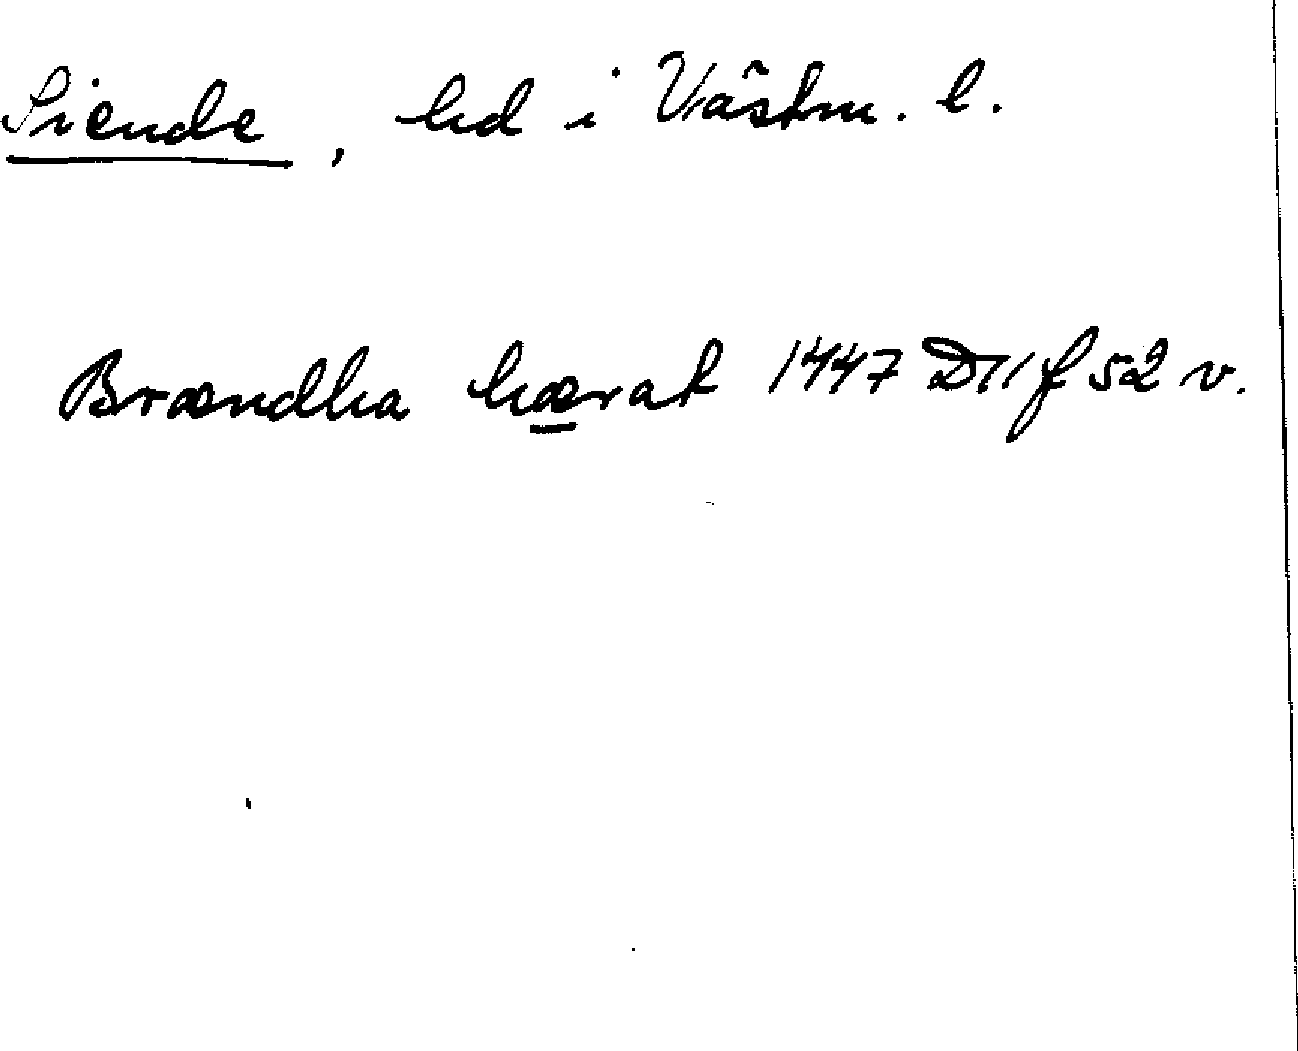 Siende, hd i Västm. l.
Brændha hærat 1447 D11 f 52 v.